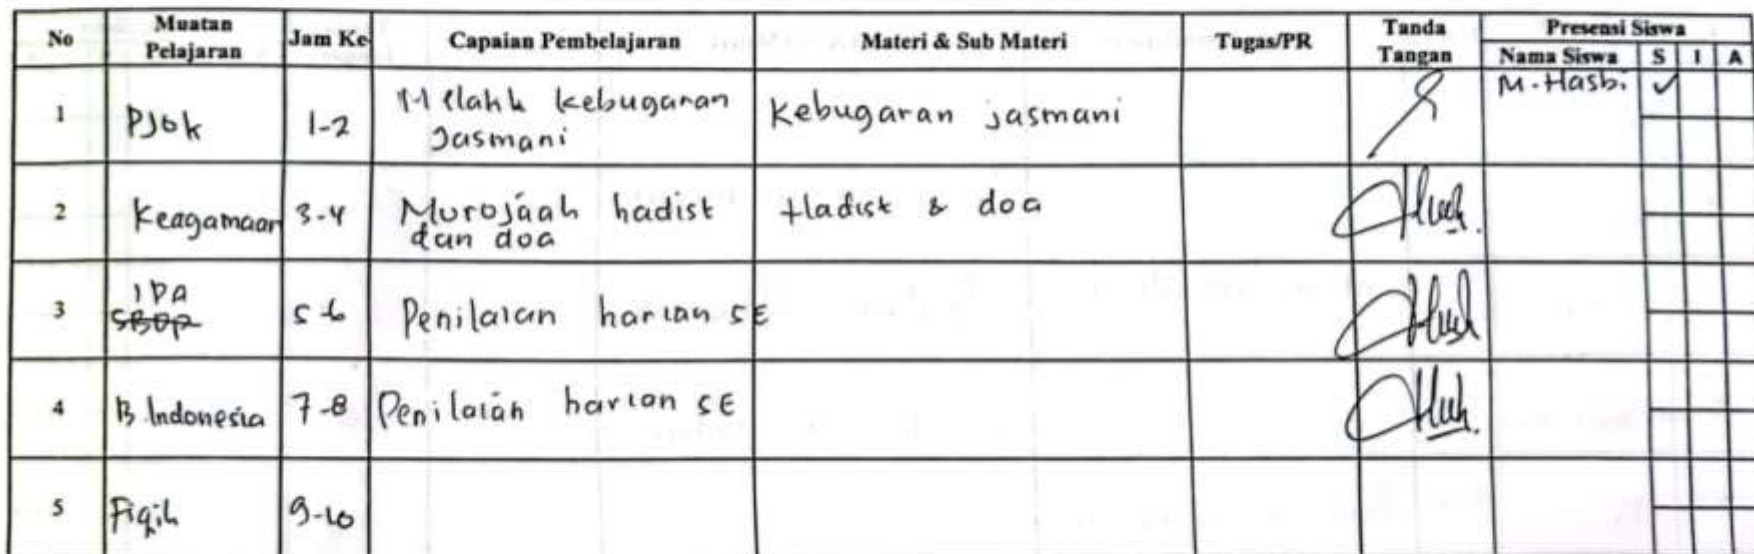 No Muatan Pelajaran Jam Ke Capaian Pembelajaran Materi & Sub Materi Tugas/PR Tanda Tangan Presensi Siswa
Nama Siswa S I A
1 PJOK 1-2 Melatih kebugaran Jasmani Kebugaran jasmani M. Hasbi ✓
2 Keagamaan 3-4 Murojaah hadist dan doa Hadist & doa
3 IPA SBDP 5-6 Penilaian harian SE
4 B. Indonesia 7-8 Penilaian harian SE
5 Fiqih 9-10